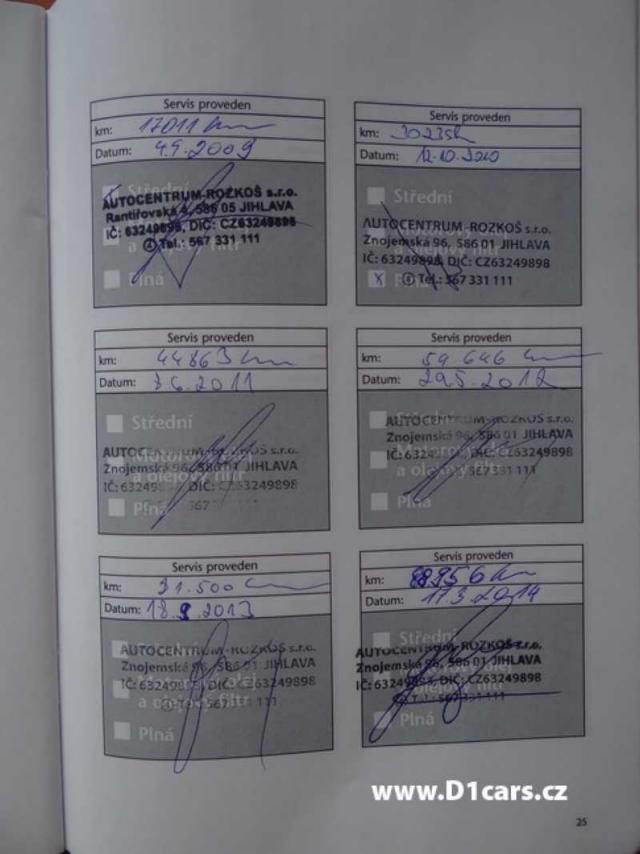 Servis proveden
km: 17011 km
Datum: 4.9.2009
Střední
AUTOCENTRUM-ROZKOŠ s.r.o.
Rantířovská 4, 586 05 JIHLAVA
IČ: 63249898, DIČ: CZ63249898
Tel.: 567 331 111
a olejový filtr
Plná
Servis proveden
km: 30235k
Datum: 12.10.2010
Střední
AUTOCENTRUM-ROZKOŠ s.r.o.
Znojemská 96, 586 01 JIHLAVA
IČ: 63249898, DIČ: CZ63249898
Tel.: 567 331 111
Plná
Servis proveden
km: 44863 km
Datum: 8.6.2011
Střední
AUTOCENTRUM-ROZKOŠ s.r.o.
Znojemská 96, 586 01 JIHLAVA
Motorový olej
a olejový filtr
IČ: 63249898, DIČ: CZ63249898
Plná
567
Servis proveden
km: 59.646 km
Datum: 29.5.2012
Střední
AUTOCENTRUM-ROZKOŠ s.r.o.
Znojemská 96, 586 01 JIHLAVA
Motorový olej
IČ: 63249898, DIČ: CZ63249898
a olejový filtr
567 331 111
Plná
Servis proveden
km: 31.500 km
Datum: 18.9.2013
Střední
AUTOCENTRUM-ROZKOŠ s.r.o.
Znojemská 96, 586 01 JIHLAVA
Motorový olej
IČ: 63249898, DIČ: CZ63249898
a olejový filtr
Tel.: 567 331 111
Plná
Servis proveden
km: 88956 km
Datum: 17.3.2014
Střední
AUTOCENTRUM-ROZKOŠ s.r.o.
Znojemská 96, 586 01 JIHLAVA
Motorový olej
IČ: 63249898, DIČ: CZ63249898
a olejový filtr
Tel.: 567 331 111
Plná
www.D1cars.cz
25